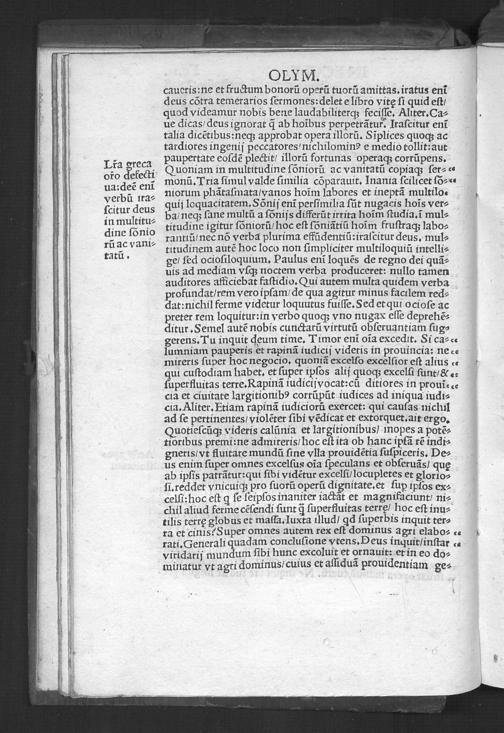 OLYM.
caueris:ne et fructum bonorū operū tuorū amittas.iratus eni
deus cōtra temerarios sermones:delet e libro vitę si quid est/
quod videamur nobis bene laudabiliterqȝ fecisse. Aliter.Ca=
ue dicas/deus ignorat q̄ ab hoībus perpetrātur. Irascitur eni
talia dicētibus:neqȝ approbat opera illorū. Sīplices quoqȝ ac
tardiores ingenij peccatores/nichilomin⁹ e medio tollit:aut
paupertate eosdē plectit/ illorū fortunas operaqȝ corrūpens.
Quoniam in multitudine sōniorū ac vanitatū copiaqȝ ser=
monū.Tria simul valde similia cōparauit. Inania scilicet sō=
niorum phātasmata/vanos hoīm labores et ineptā multilo=
quij loquacitatem.Sōnij eni persimilia sunt nugacis hoīs ver=
ba/neqȝ sane multū a sōnijs differūt irrita hoīm studia.ī mul=
titudine igitur sōniorū/hoc est sōniātiū hoīm frustraqȝ labo=
rantiū/nec nō verba plurima effūdentiū:irascitur deus. mul=
titudinem autē hoc loco non simpliciter multiloquiū intelli=
ge/sed ociosiloquium. Paulus eni loquēs de regno dei quā=
uis ad mediam vsqȝ noctem verba produceret: nullo tamen
auditores afficiebat fastidio. Qui autem multa quidem verba
profundat/rem vero ipsam/de qua agitur minus facilem red=
dat:nichil ferme videtur loquutus fuisse.Sed et qui ociose ac
preter rem loquitur:in verbo quoqȝ vno nugax esse deprehē=
ditur.Semel autē nobis cunctarū virtutū obseruantiam sug=
gerens.Tu inquit deum time. Timor eni oīa excedit. Si ca=
lumniam pauperis et rapinā iudicij videris in prouincia: ne
mireris super hoc negocio. quoniā excelso excelsior est alius
qui custodiam habet. et super ipsos alij quoqȝ excelsi sunt/&
superfluitas terre.Rapinā iudicij vocat:cū ditiores in prouī=
cia et ciuitate largitionib⁹ corrūpūt iudices ad iniqua iudi=
cia.Aliter.Etiam rapinā iudiciorū exercet: qui causas nichil
ad se pertinentes/violēter sibi vēdicat et extorquet.ait ergo.
Quotiescūqȝ videris calūnia et largitionibus/ inopes a potē=
tioribus premi:ne admireris/ hoc est ita ob hanc ipsā rē indi=
gneris/vt fluitare mundū sine vlla prouidētia suspiceris. De=
us enim super omnes excelsus oīa speculans et obseruās/ quę
ab ipsis patrātur:qui sibi vidētur excelsi/locupletes et glorio=
si.reddet vnicuiqȝ pro suorū operū dignitate.et sup ipsos ex=
celsi:hoc est q se seipsos inaniter iactāt et magnifaciunt/ ni=
chil aliud ferme cēsendi sunt q̄ superfluitas terrę/ hoc est inu=
tilis terrę globus et massa.Iuxta illud/ qd superbis inquit ter=
ra et cinis/Super omnes autem rex est dominus agri elabo=
rati.Generali quadam conclusione vtens.Deus inquit/instar
viridarij mundum sibi hunc excoluit et ornauit: et in eo do=
minatur vt agri dominus/cuius et assiduā prouidentiam ge=
Lr̄a greca
oro defecti
ua:deē eni
verbū ira=
scitur deus
in multitu=
dine sōnio
rū ac vani=
tatū.